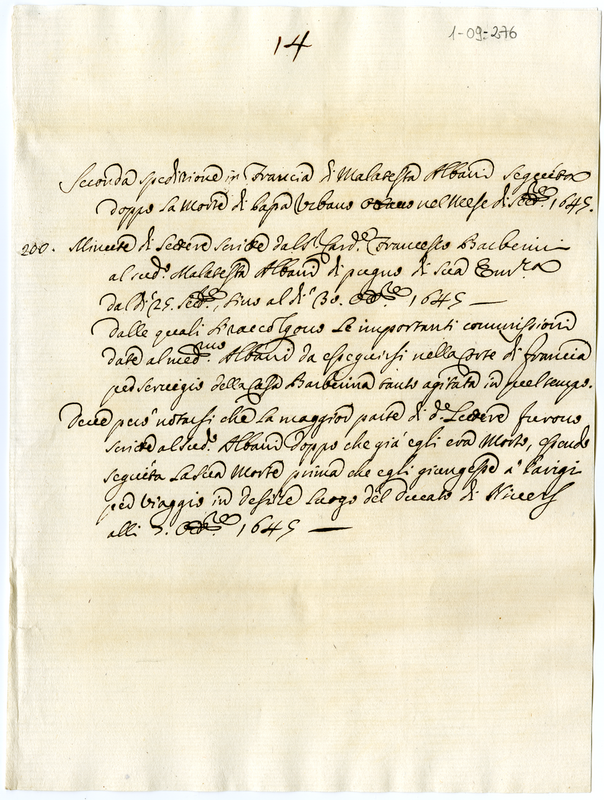 14
1-09-276
Seconda spedizione in Francia di Malatesta Albani seguita
doppo la Morte di Papa Urbano nel Mese di Sett.re 1645.
200. Minute di Lettere scritte dal S.r Card.e Francesco Barberini
al sud.o Malatesta Albani di pugno di Sua Em.za
dal dì 25. Sett.re, fino al dì 30. 1645 —
dalle quali si raccolgono le importanti commissioni
date al med.mo Albani da esseguirsi nella Corte di Francia
per servigio della Casa Barberina tanto agitata in quel tempo.
Deve però notarsi che la maggior parte di d.e Lettere furono
scritte al sud.o Albani doppo che già egli era Morto, essendo
seguita la sua Morte prima che egli giungesse a Parigi
per viaggio in Luogo del ducato di Nivers
alli 1645 —